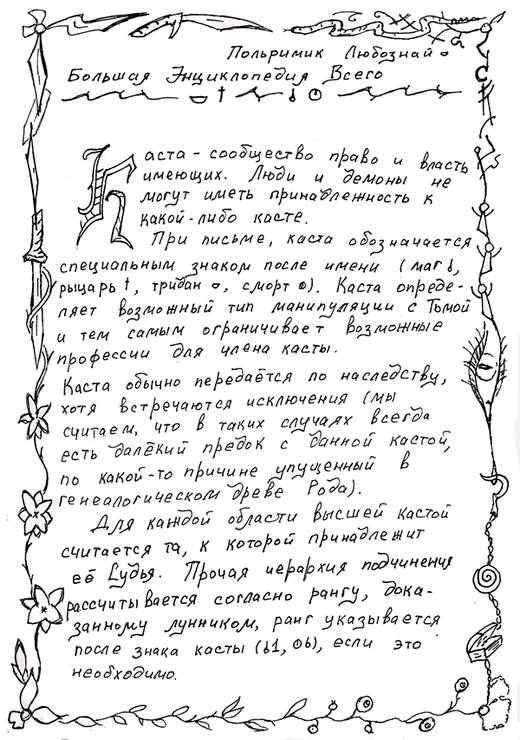 Польримик Любознай
Большая Энциклопедия Всего
Каста - сообщество право и власть
имеющих. Люди и демоны не
могут иметь принадлежность к
какой-либо касте.
При письме, каста обозначается
специальным знаком после имени (маг ♁,
рыцарь †, тридан ⚬, сморт ⊙). Каста опреде-
ляет возможный тип манипуляции с Тьмой
и тем самым ограничивает возможные
профессии для члена касты.
Каста обычно передаётся по наследству,
хотя встречаются исключения (мы
считаем, что в таких случаях всегда
есть далёкий предок с данной кастой,
по какой-то причине упущенный в
генеалогическом древе Рода).
Для каждой области высшей кастой
считается та, к которой принадлежит
её Судья. Прочая иерархия подчинения
рассчитывается согласно рангу, дока-
занному лунником, ранг указывается
после знака касты (♁1, ⊙6), если это
необходимо.